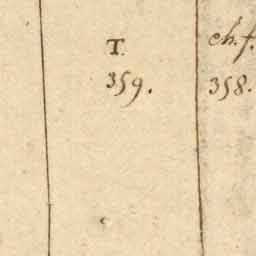 T.
359.
ch. f.
358.